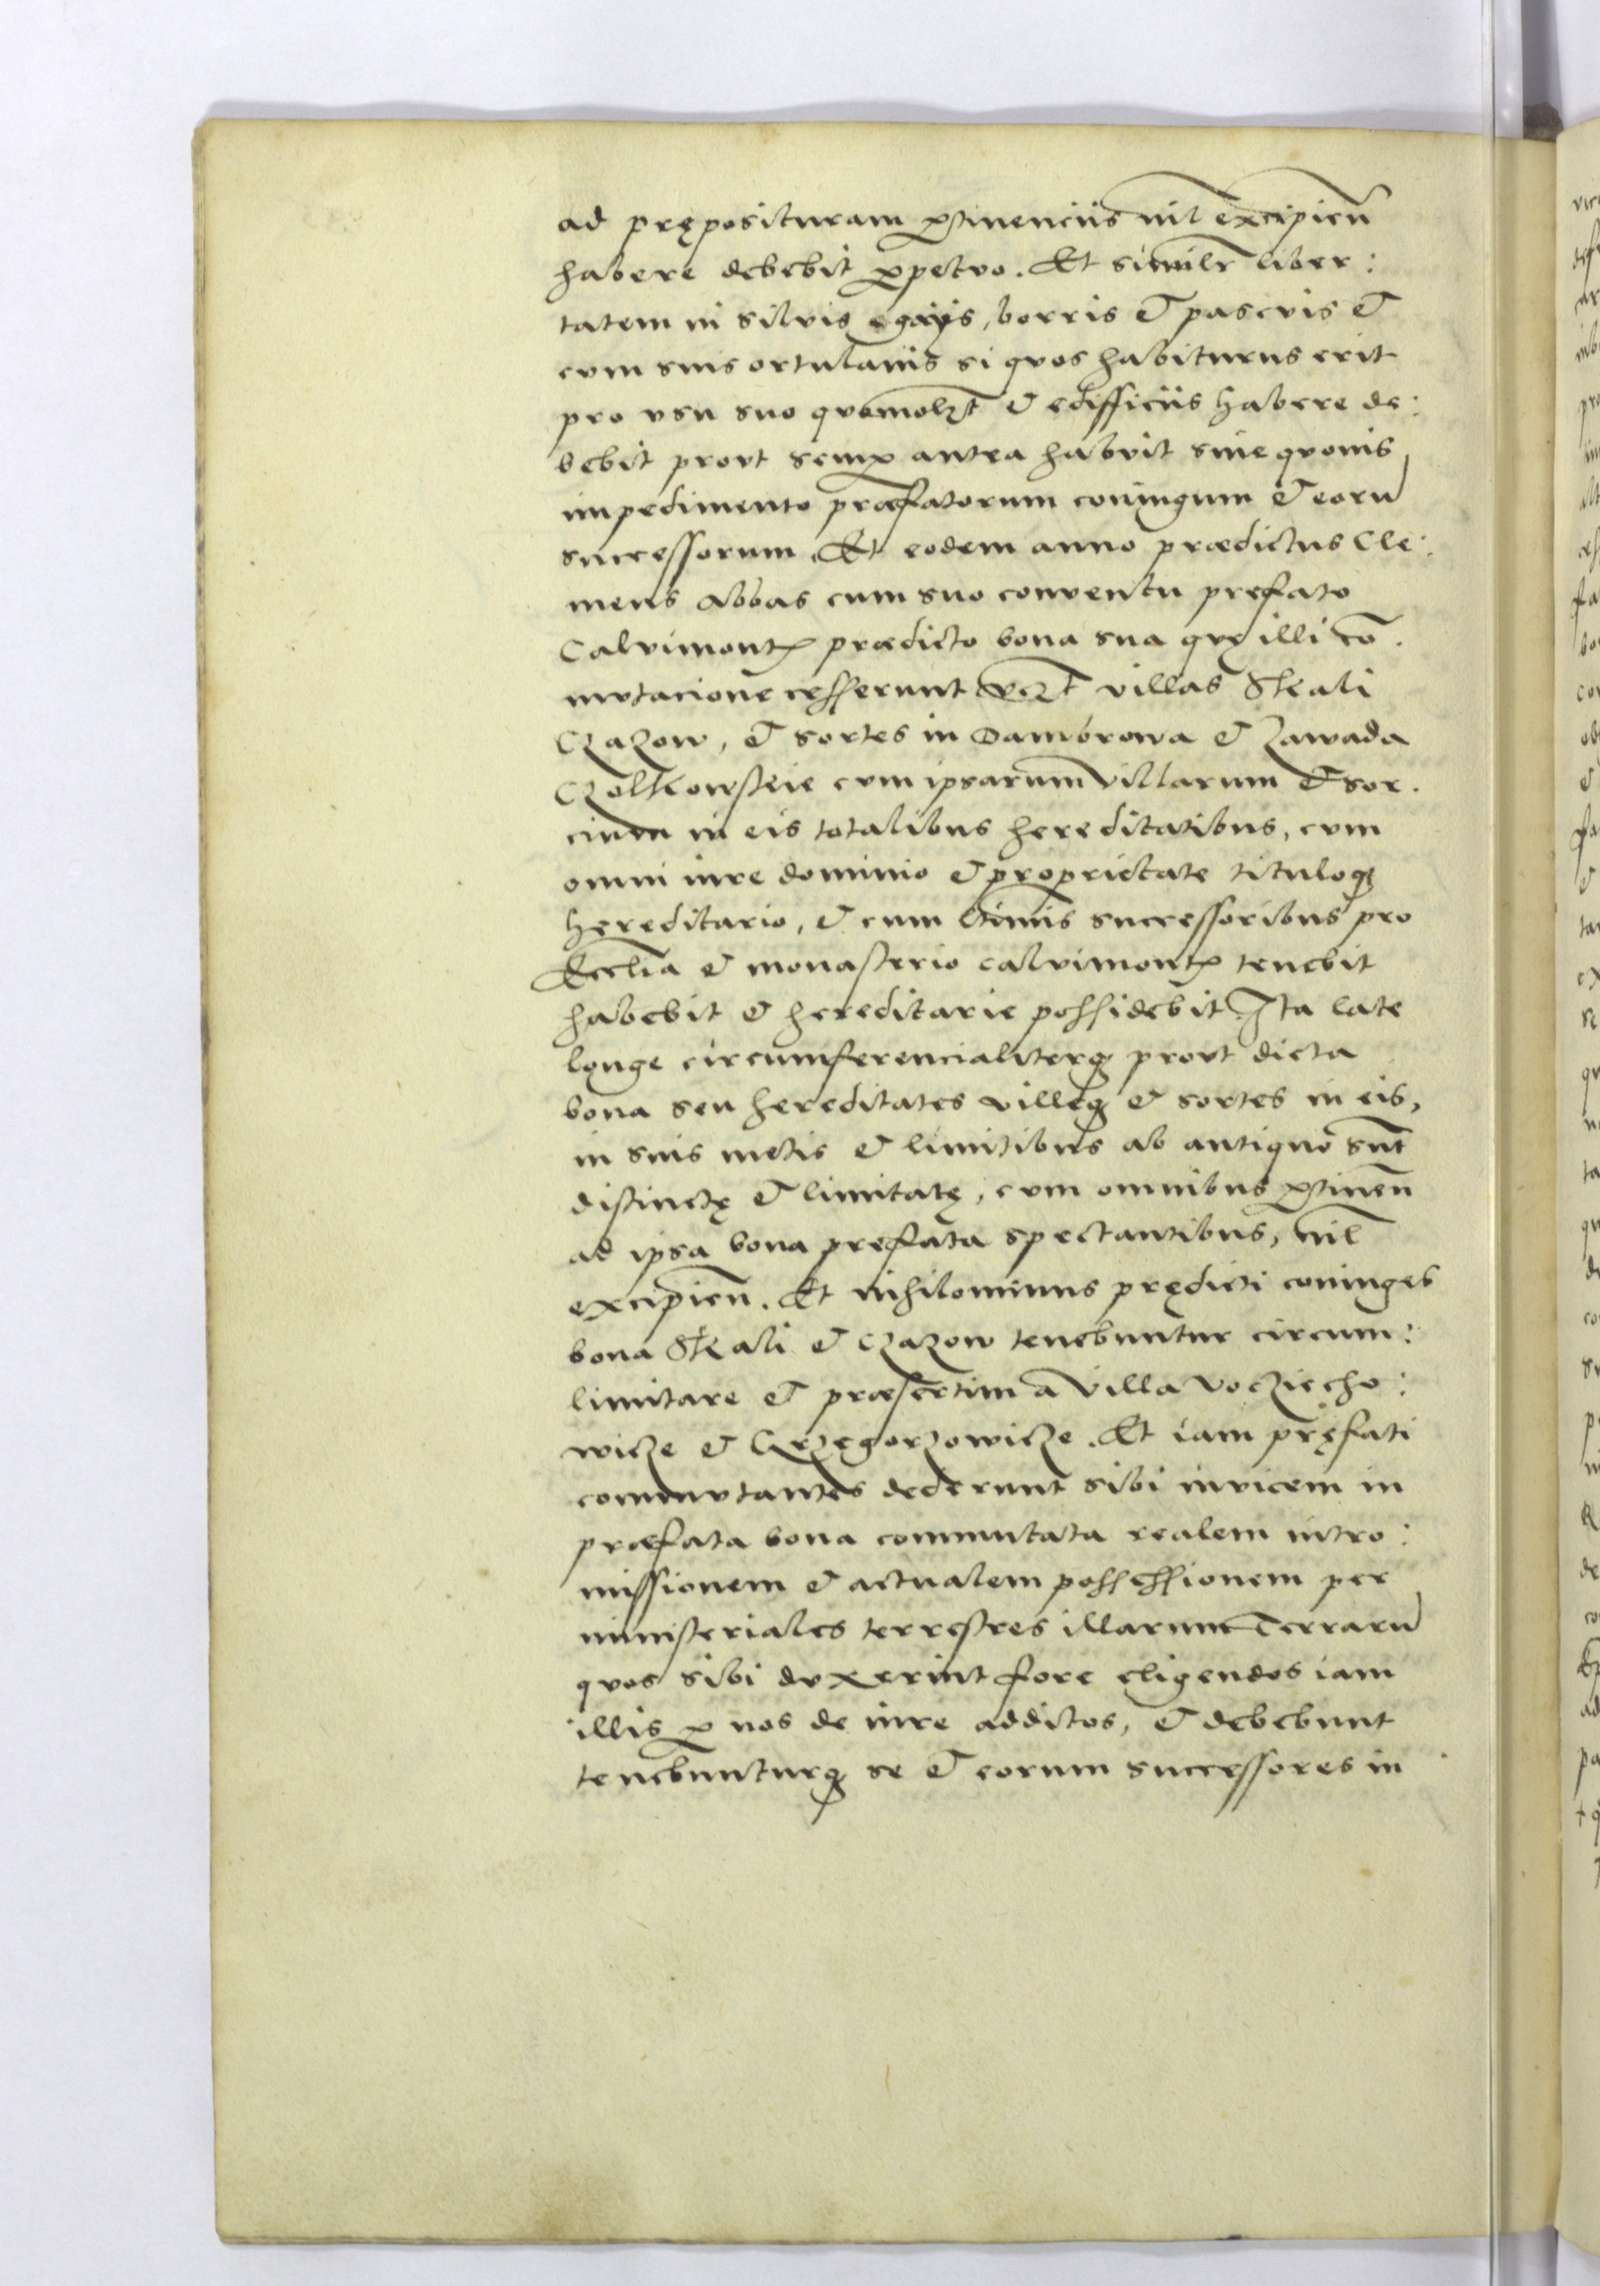 ad pręposituram ꝑtinenciis nil excipien̄
habere debebit ꝑpetuo. Et similr̄ liber:
tatem in siluis gayis, borris & pascuis &
cum suis ortulanis si quos habiturus erit
pro usu suo & edifficiis habere de:
bebit prout semꝑ antea habuit sine quouis
impedimento præfatorum coniugum & eorū
successorum. Et eodem anno prædictus Cle:
mens Abbas cum suo conuentu prefato
Caluimontꝭ prædicto bona sua quę illi cō.
mutacione cesserunt vꝫt villas Skali
Czazow, & sortes in Dambrowa & Zawada
Czolkowskie cum ipsarum villarum & sor.
cium in eis totalibus hereditatibus, cum
omni iure dominio & proprietate tituloqꝫ
hereditario, & cum successoribus pro
Ecclīa & monasterio caluimontꝭ tenebit
habebit & hereditarie possidebit. Ita late
longe circumferencialiterqꝫ prout dicta
bona seu hereditates villeqꝫ & sortes in eis,
in suis metis & limitibus ab antiquo sūt
distinctę & limitatę, cum omnibus ꝑtinen̄
ad ipsa bona prefata spectantibus, nil
excipien̄. Et nihilominus prędicti coniuges
bona Skali & Czazow tenebuntur circum:
limitare & præsertim a villa Voczięcho:
wicze & Grzegorzowicze. Et iam pręfati
commutantes dederunt sibi inuicem in
præfata bona commutata realem intro:
missionem & actualem possessionem per
ministeriales terrestres illarum Terrarū
quos sibi duxerint fore eligendos iam
illis ꝑ nos de iure additos, & debebunt
tenebunturqꝫ se & eorum successores in